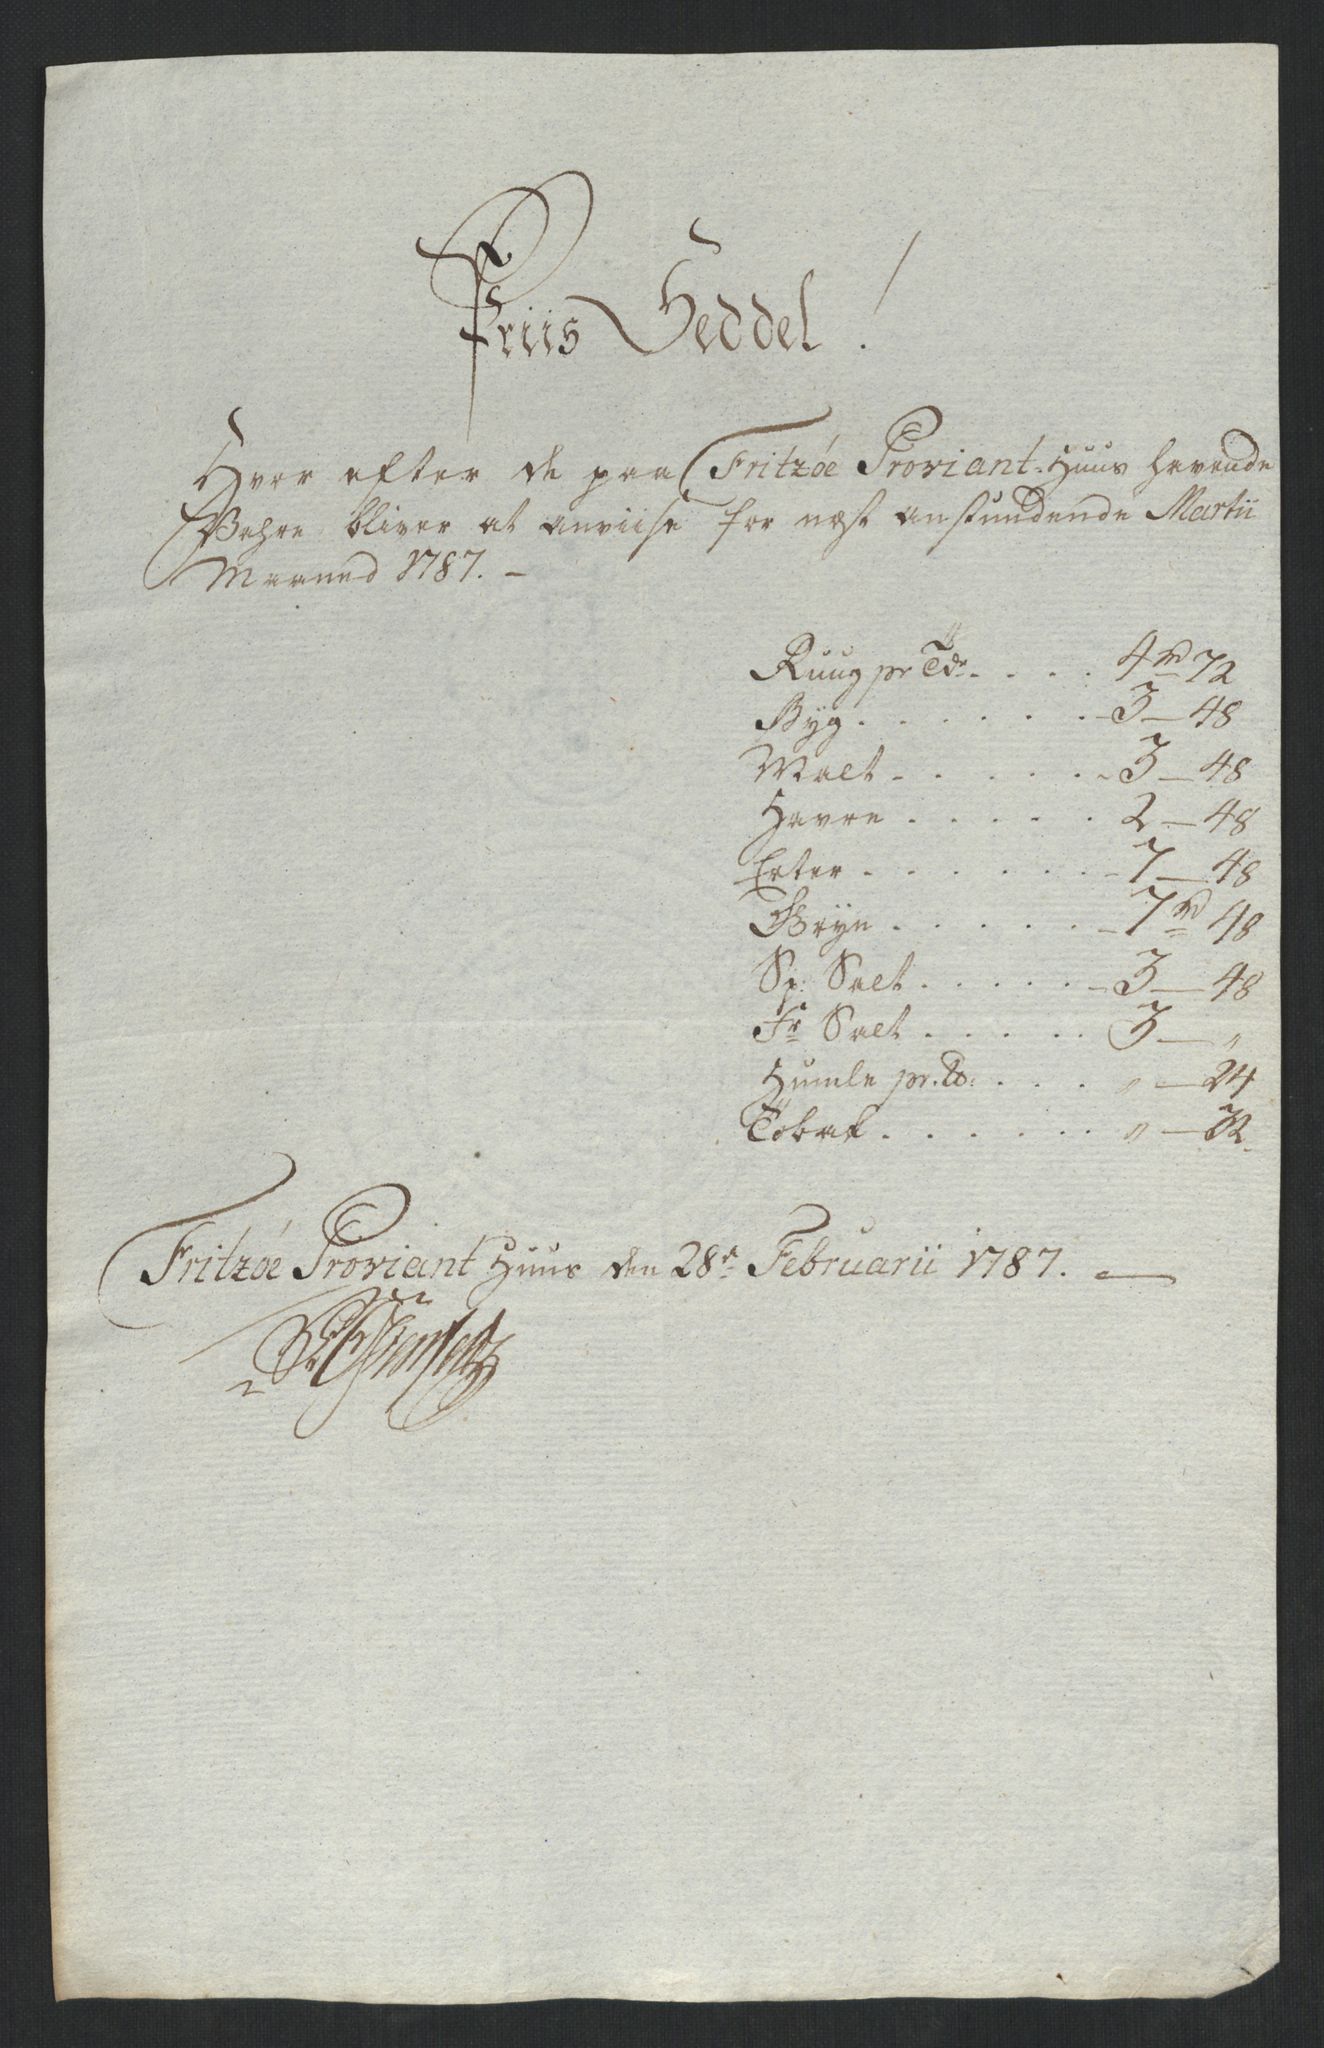 Priis Seddel!
Hvor efter de paa Fritzöe Proviant-Huus havende
Vahre bliver at anviise for næst anstundende Martii
Maaned 1787. –
Ruug pr Tde. . . . . 4 rd 72
Byg . . . . . . – 3 – 48
Malt . . . . . . 3 – 48
Havre . . . . . 2 – 48
Erter . . . . . . – 7 – 48
Gryn . . . . . – 7 rd 48
Sp: Salt . . . . . – 3 – 48
Fr Salt . . . . . 3 – "
Humle pr. ℔: . . . " – 24
Tobak . . . . . . . " – 32.
Fritzöe Proviant Huus den 28de Februarii 1787. –